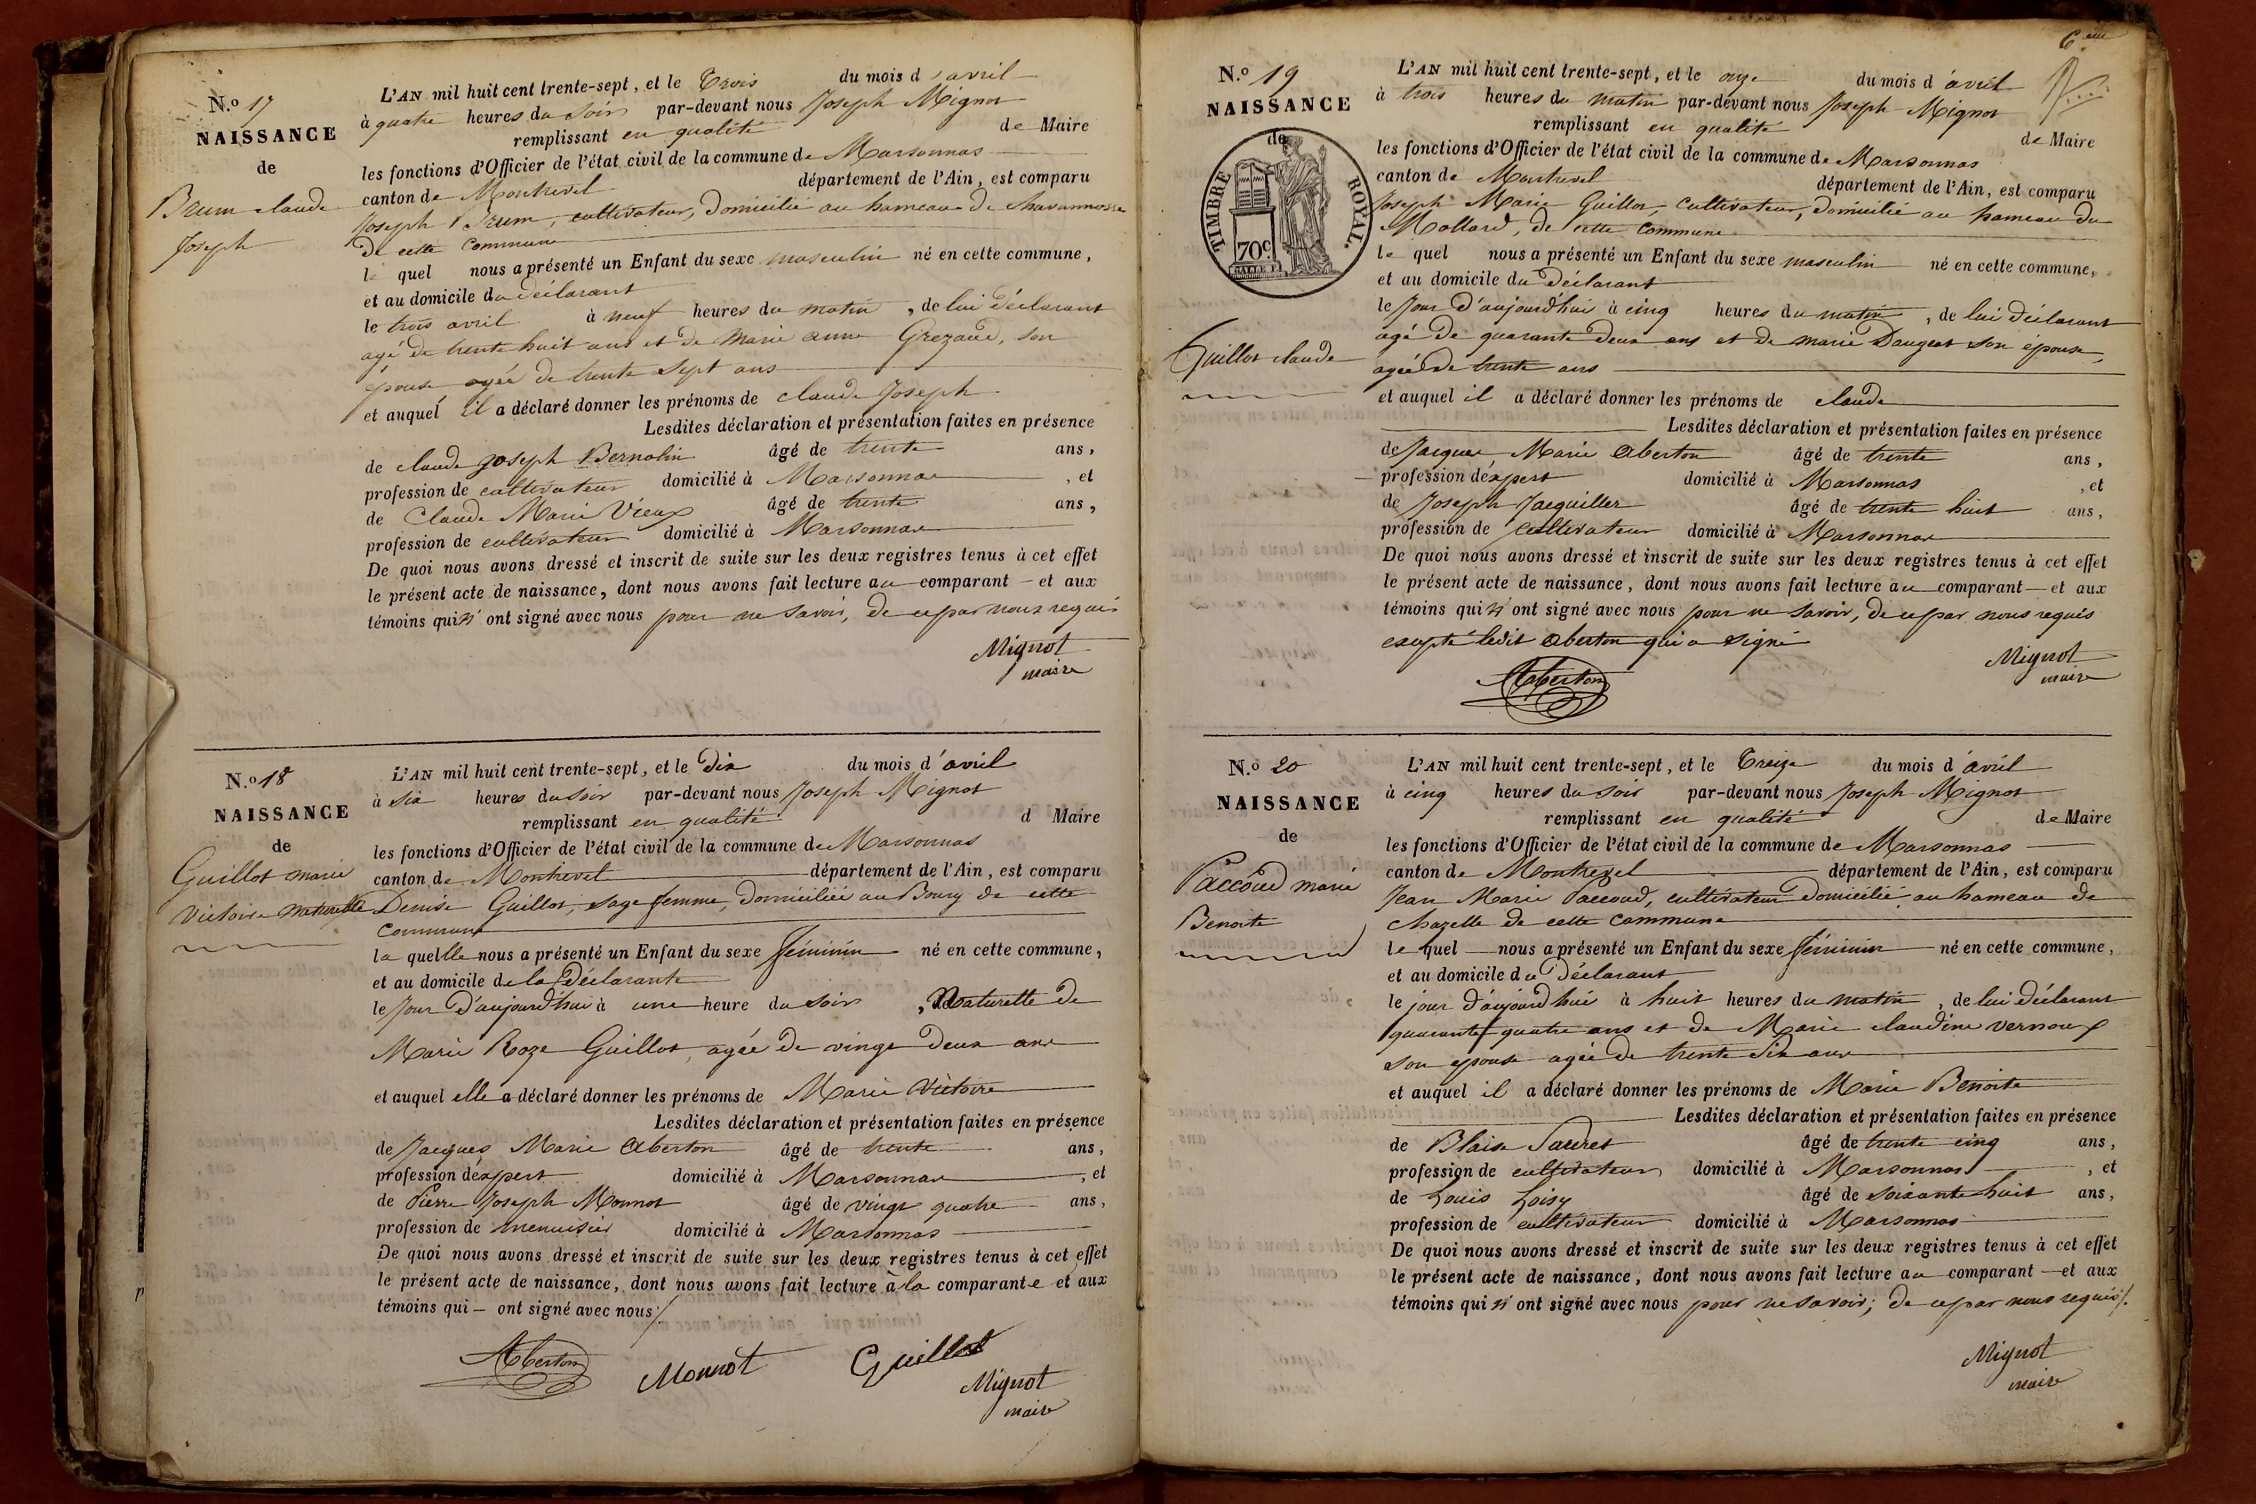 N.º 17
NAISSANCE
de
Brum claude
Joseph
L'AN mil huit cent trente-sept, et le Trois du mois d'avril
à quatre heures du soir par-devant nous Joseph Mignot
remplissant en qualité de Maire
les fonctions d'Officier de l'état civil de la commune de Marsonnas
canton de Montrevel département de l'Ain, est comparu
Joseph Brum, cultivateur, domicilié au hameau de
de cette commune
le quel nous a présenté un Enfant du sexe masculin né en cette commune,
et au domicile du déclarant
le trois avril à neuf heures du matin, de lui déclarant
agé de trente huit ans et de Marie anne Grezaud, son
épouse agée de trente sept ans
et auquel il a déclaré donner les prénoms de claude Joseph
Lesdites déclaration et présentation faites en présence
de claude Joseph Bernolin âgé de trente ans,
profession de cultivateur domicilié à Marsonnas, et
de Claude Marie Vieux âgé de trente ans,
profession de cultivateur domicilié à Marsonnas
De quoi nous avons dressé et inscrit de suite sur les deux registres tenus à cet effet
le présent acte de naissance, dont nous avons fait lecture au comparant et aux
témoins qui n'ont signé avec nous pour ne savoir, de ce par nous requis
Mignot
maire
N.º 18
NAISSANCE
de
Guillot marie
Victoire naturelle
L'AN mil huit cent trente-sept, et le Dix du mois d'avril
à six heures du soir par-devant nous Joseph Mignot
remplissant en qualité d Maire
les fonctions d'Officier de l'état civil de la commune de Marsonnas
canton de Montrevel département de l'Ain, est comparu
Denise Guillot, sage femme, domiciliée au Bourg de cette
commune
la quelle nous a présenté un Enfant du sexe féminin né en cette commune,
et au domicile de la Déclarante
le jour d'aujourd'hui à une heure du soir, Naturelle de
Marie Roze Guillot agée de vingt deux ans
et auquel elle a déclaré donner les prénoms de Marie Victoire
Lesdites déclaration et présentation faites en présence
de Jacques Marie Aberton âgé de trente ans,
profession d'éxpert domicilié à Marsonnas, et
de Pierre Joseph Monnot âgé de vingt quatre ans,
profession de menuisier domicilié à Marsonnas
De quoi nous avons dressé et inscrit de suite sur les deux registres tenus à cet effet
le présent acte de naissance, dont nous avons fait lecture à la comparante et aux
témoins qui ont signé avec nous ./.
Aberton Monnot Guillot
Mignot
maire
6.eme
N.º 19
NAISSANCE
de
TIMBRE ROYAL.
70c
Guillot claude
L'AN mil huit cent trente-sept, et le onze du mois d'avril
à trois heures du matin par-devant nous Joseph Mignot
remplissant en qualité de Maire
les fonctions d'Officier de l'état civil de la commune de Marsonnas
canton de Montrevel département de l'Ain, est comparu
Joseph Marie Guillot, cultivateur, domicilié au hameau du
Mollard, de cette commune
le quel nous a présenté un Enfant du sexe masculin né en cette commune,
et au domicile du déclarant
le jour d'aujourd'hui à cinq heures du matin, de lui déclarant
agé de quarante deux ans et de marie Daugeat son epouse,
agée de trente ans
et auquel il a déclaré donner les prénoms de claude
Lesdites déclaration et présentation faites en présence
de Jacques Marie Aberton âgé de trente ans,
profession d'éxpert domicilié à Marsonnas, et
de Joseph Jacquiller âgé de trente huit ans,
profession de cultivateur domicilié à Marsonnas
De quoi nous avons dressé et inscrit de suite sur les deux registres tenus à cet effet
le présent acte de naissance, dont nous avons fait lecture au comparant et aux
témoins qui n'ont signé avec nous pour ne savoir, de ce par nous requis
excepté ledit Aberton qui a signé
Aberton
Mignot
maire
N.º 20
NAISSANCE
de
Paccoud marie
Benoite
L'AN mil huit cent trente-sept, et le Treize du mois d'avril
à cinq heures du soir par-devant nous Joseph Mignot
remplissant en qualité de Maire
les fonctions d'Officier de l'état civil de la commune de Marsonnas
canton de Montrevel département de l'Ain, est comparu
Jean Marie Paccoud, cultivateur domicilié au hameau de
chazelle de cette commune
le quel nous a présenté un Enfant du sexe féminin né en cette commune,
et au domicile du Déclarant
le jour d'aujourd'hui à huit heures du matin, de lui déclarant
quarante quatre ans et de Marie claudine Vernoux
son epouse agée de trente six ans
et auquel il a déclaré donner les prénoms de Marie Benoite
Lesdites déclaration et présentation faites en présence
de Blaise Saudret âgé de trente cinq ans,
profession de cultivateur domicilié à Marsonnas, et
de Louis Loisy âgé de soixante huit ans,
profession de cultivateur domicilié à Marsonnas
De quoi nous avons dressé et inscrit de suite sur les deux registres tenus à cet effet
le présent acte de naissance, dont nous avons fait lecture au comparant et aux
témoins qui n'ont signé avec nous pour ne savoir, de ce par nous requis ./.
Mignot
maire